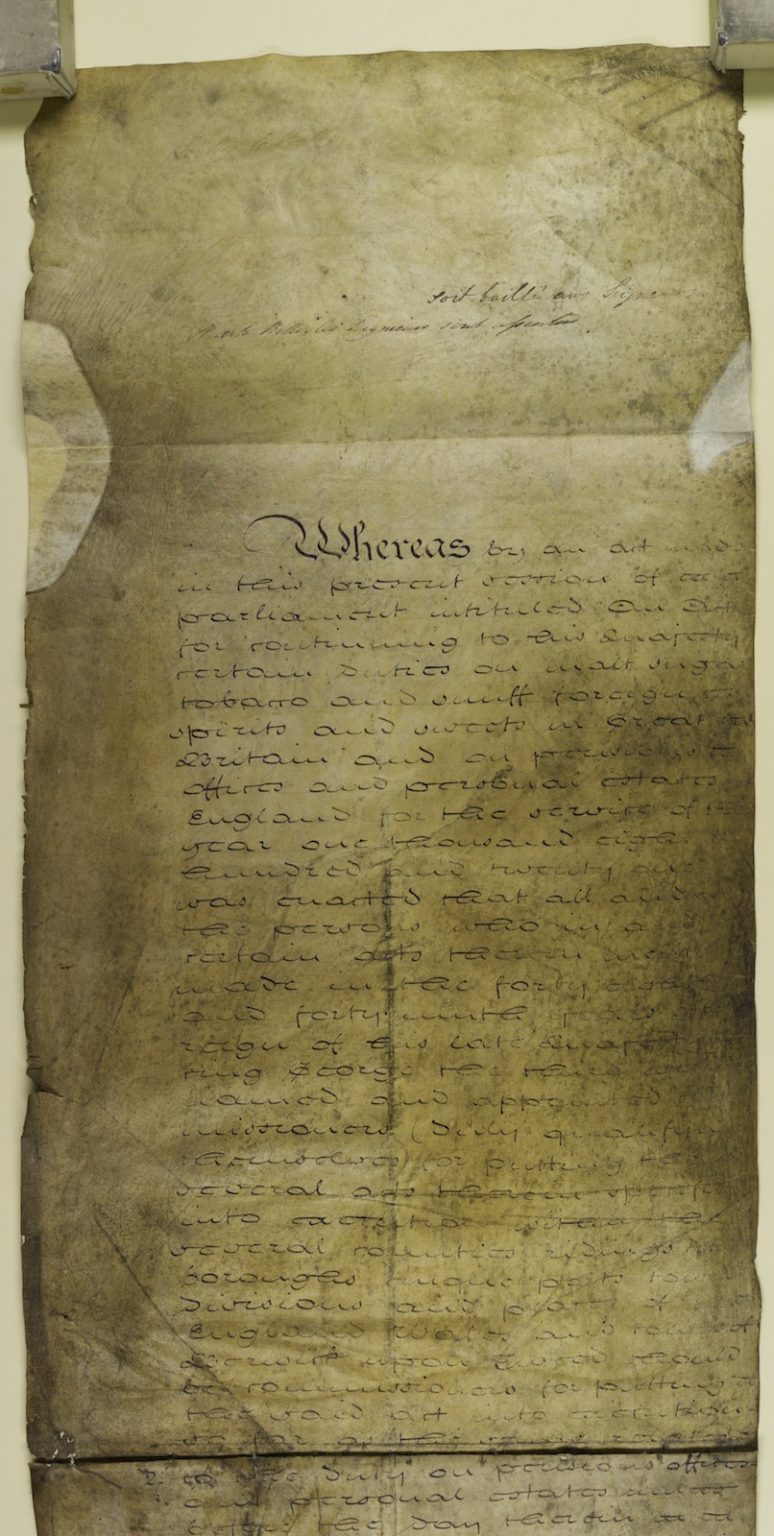 soit baillé aux Seigneurs
Seigneurs sont assentus
Whereas by an act made
in this present session of
parliament intituled An Act
for continuing to his Majesty
certain duties on malt sugar
tobacco and snuff foreign
spirits and sweets in Great
Britain and on pensions
offices and personal estates
England for the service of the
year one thousand eight
hundred and twenty one
was enacted that all and
the persons who in
certain acts therein
made in the forty
and forty ninth years of
reign of his late Majesty
King George the third
named and appointed
missioners (duly qualifying
themselves) for putting the
several acts therein
into execution within the
several counties ridings
boroughs cinque ports towns
divisions and places of
England Wales and town of
Berwick upon Tweed should
be commissioners for putting
the said act into execution
so far as the same relates
2. to the duty on pensions offices
and personal estates
the day therein